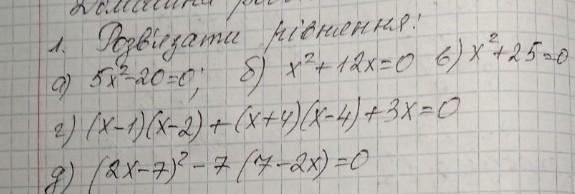 Домашня ро
1. Розв'язати рівняння:
а) 5x²-20=0; б) x²+12x=0 в) x²+25=0
г) (x-1)(x-2)+(x+4)(x-4)+3x=0
д) (2x-7)²-7(7-2x)=0